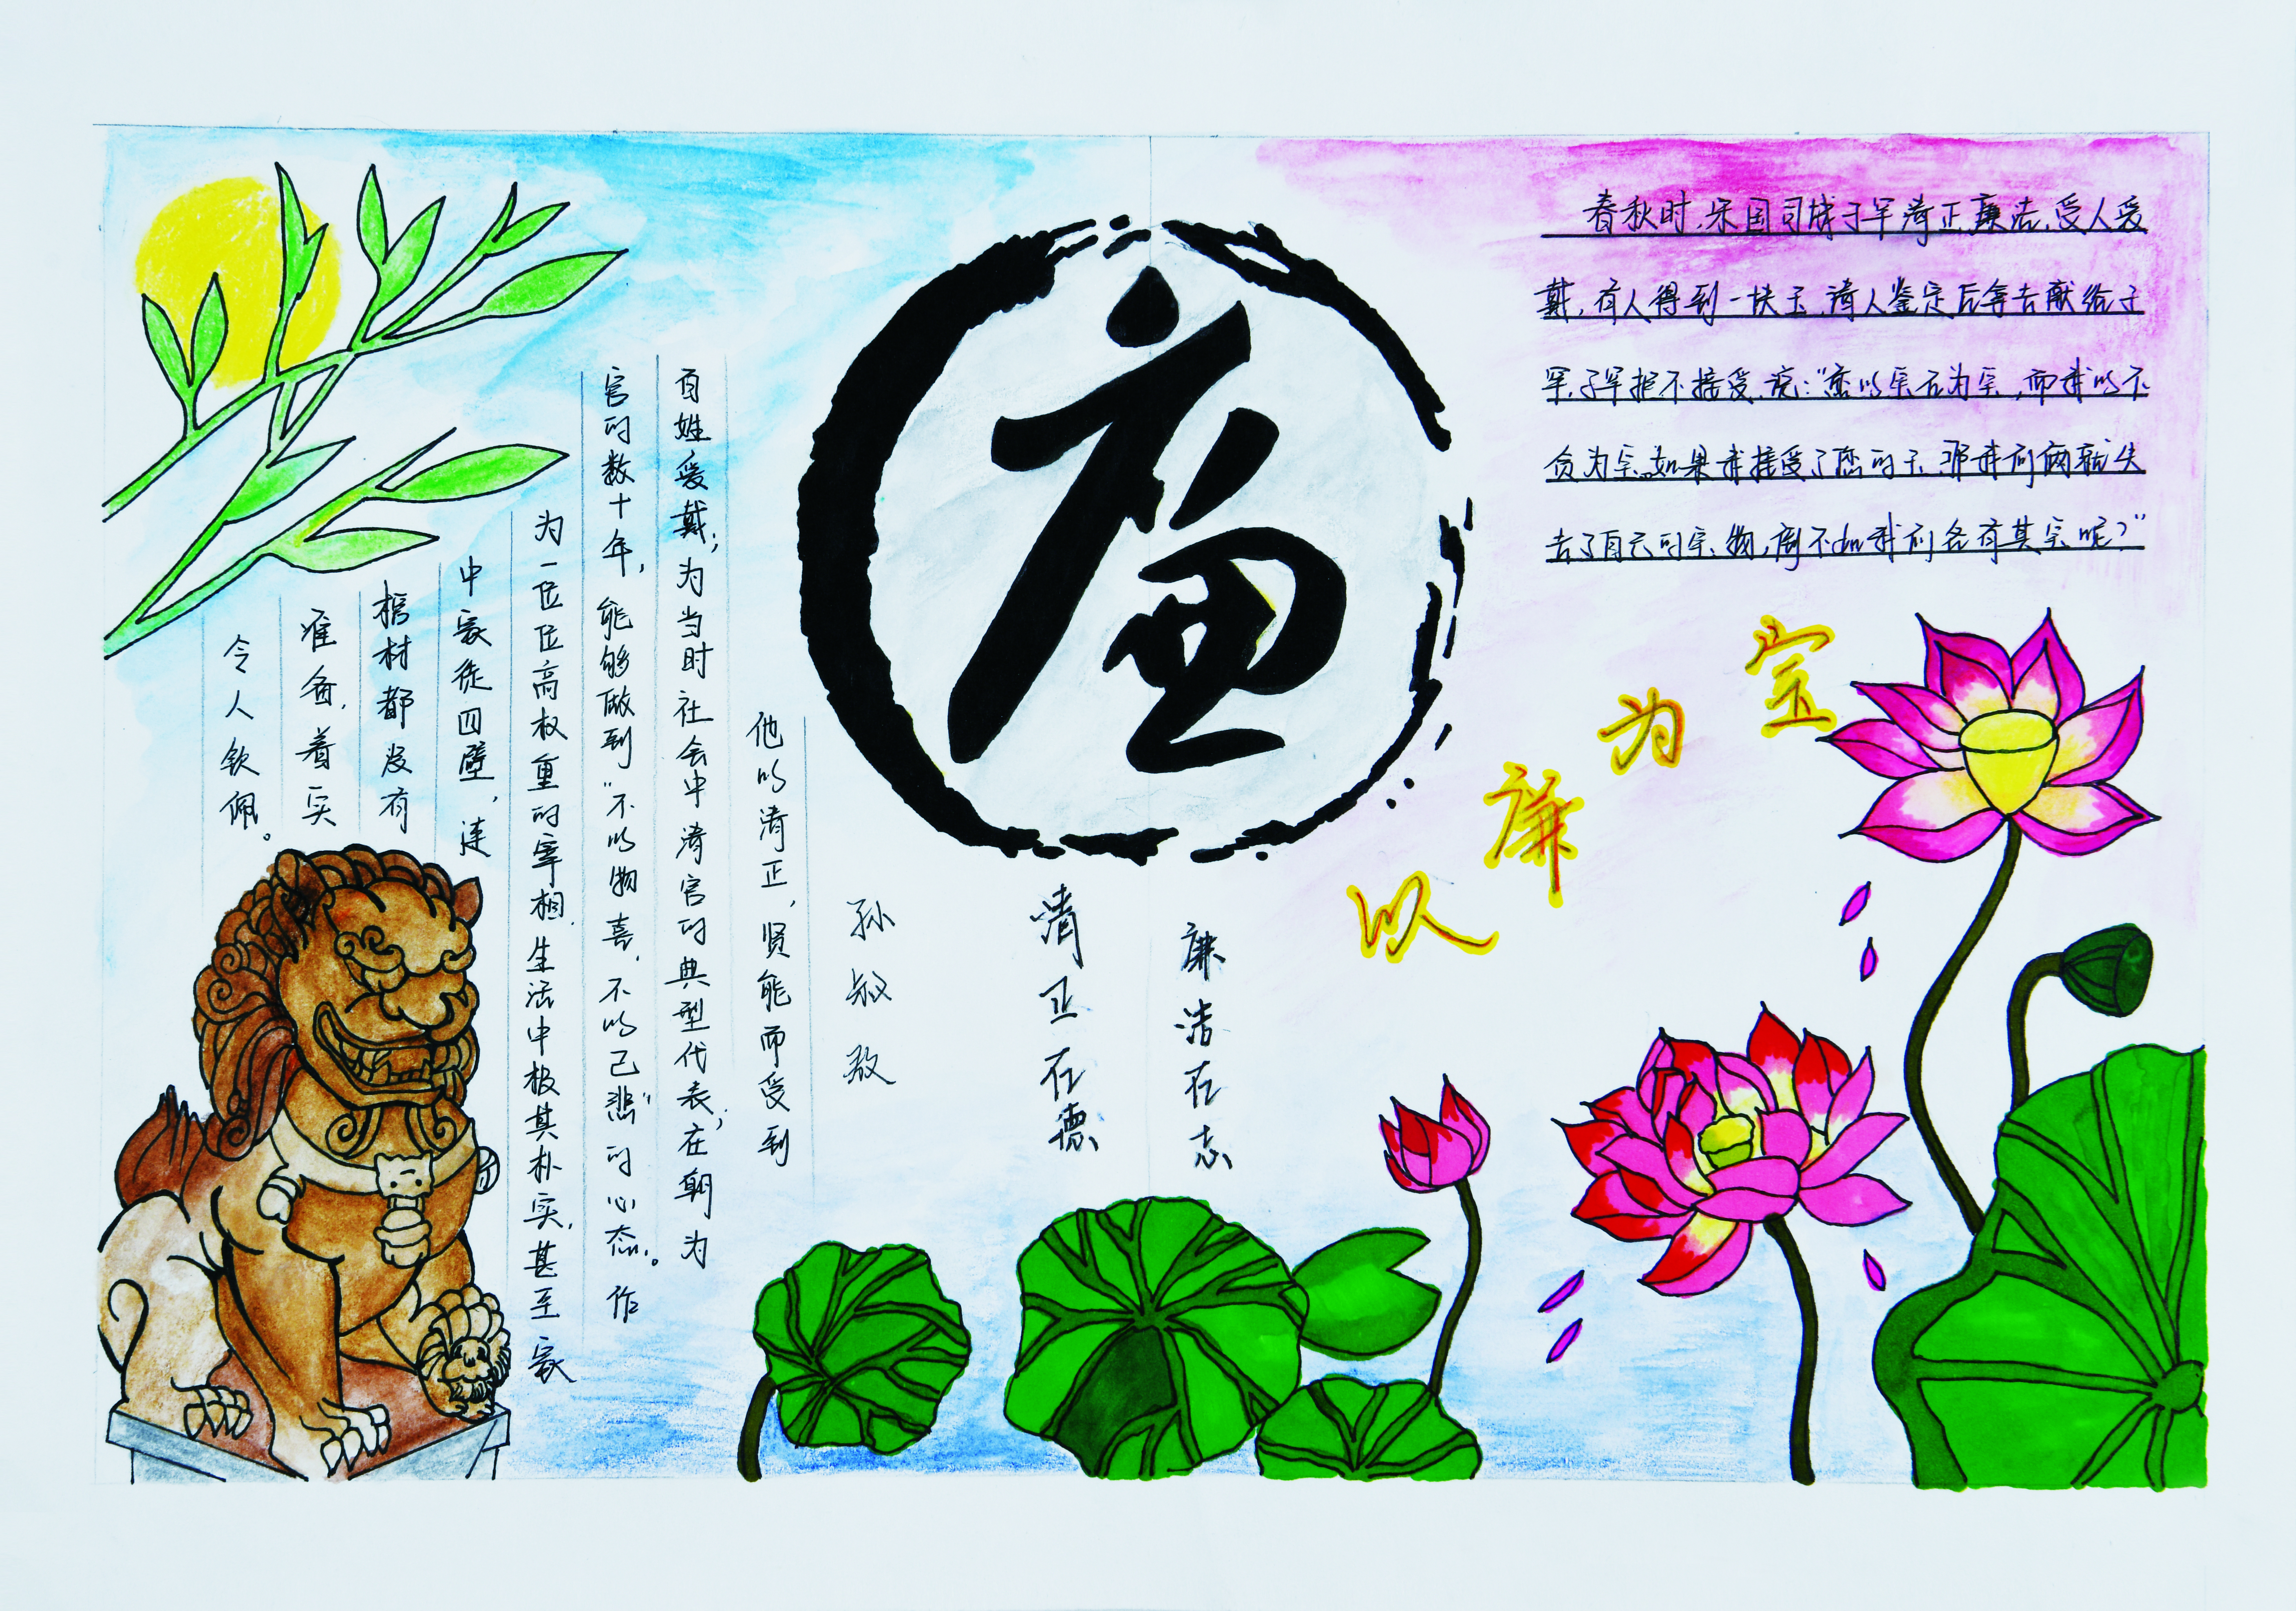 廉
春秋时,宋国司城子罕清正廉洁,受人爱
戴,有人得到一块玉,请人鉴定后拿去献给子
罕,子罕拒不接受,说:“您以宝石为宝,而我以不
贪为宝。如果我接受了您的玉,那我们俩就失
去了自己的宝物,倒不如我们各有其宝呢?”
以廉为宝
廉洁在志
清正在德
孙叔敖
他以清正,贤能而受到
百姓爱戴;为当时社会中清官的典型代表;在朝为
官的数十年,能够做到“不以物喜,不以己悲”的心态。作
为一位位高权重的宰相,生活中极其朴实,甚至家
中家徒四壁,连
棺材都没有
准备,着实
令人钦佩。